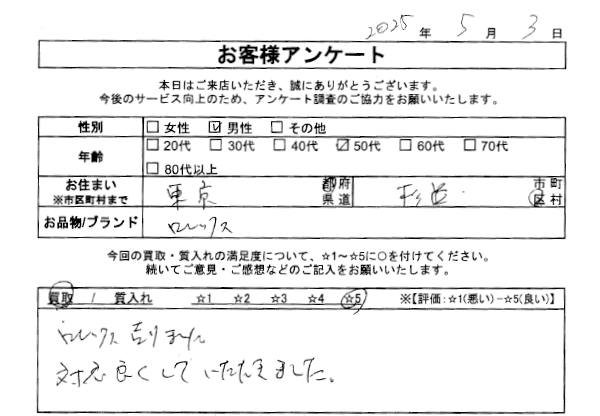 2025年 5月 3日
お客様アンケート
本日はご来店いただき、誠にありがとうございます。
今後のサービス向上のため、アンケート調査のご協力をお願いいたします。
性別 □女性 ☑男性 □その他
年齢 □20代 □30代 □40代 ☑50代 □60代 □70代
□80代以上
お住まい ※市区町村まで 東京 都府県道 杉並 市町区村
お品物/ブランド ロレックス
今回の買取・質入れの満足度について、☆1～☆5に○を付けてください。
続いてご意見・ご感想などのご記入をお願いいたします。
買取 / 質入れ ☆1 ☆2 ☆3 ☆4 ☆5 ※【評価:☆1(悪い)−☆5(良い)】
ロレックス売りました
対応良くしていただきました。